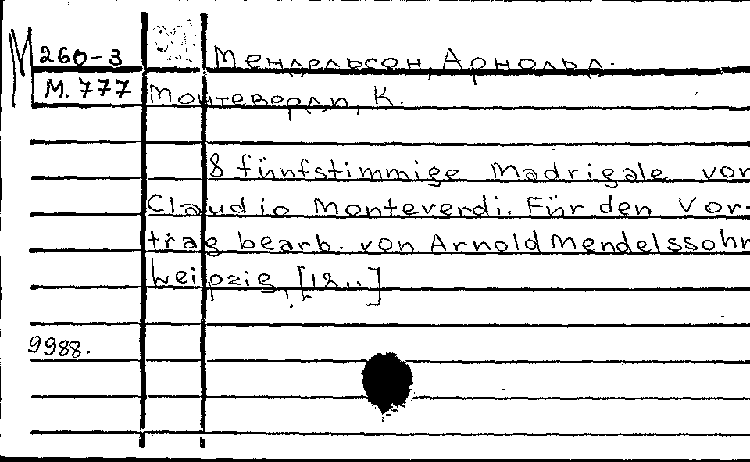 М 260-3 Мендельсон, Арнольд.
М. 777 Монтеверди, К.
8 fünfstimmige Madrigale von
Claudio Monteverdi. Für den Vor-
trag bearb. von Arnold Mendelssohn
Leipzig, [18..]
9988.